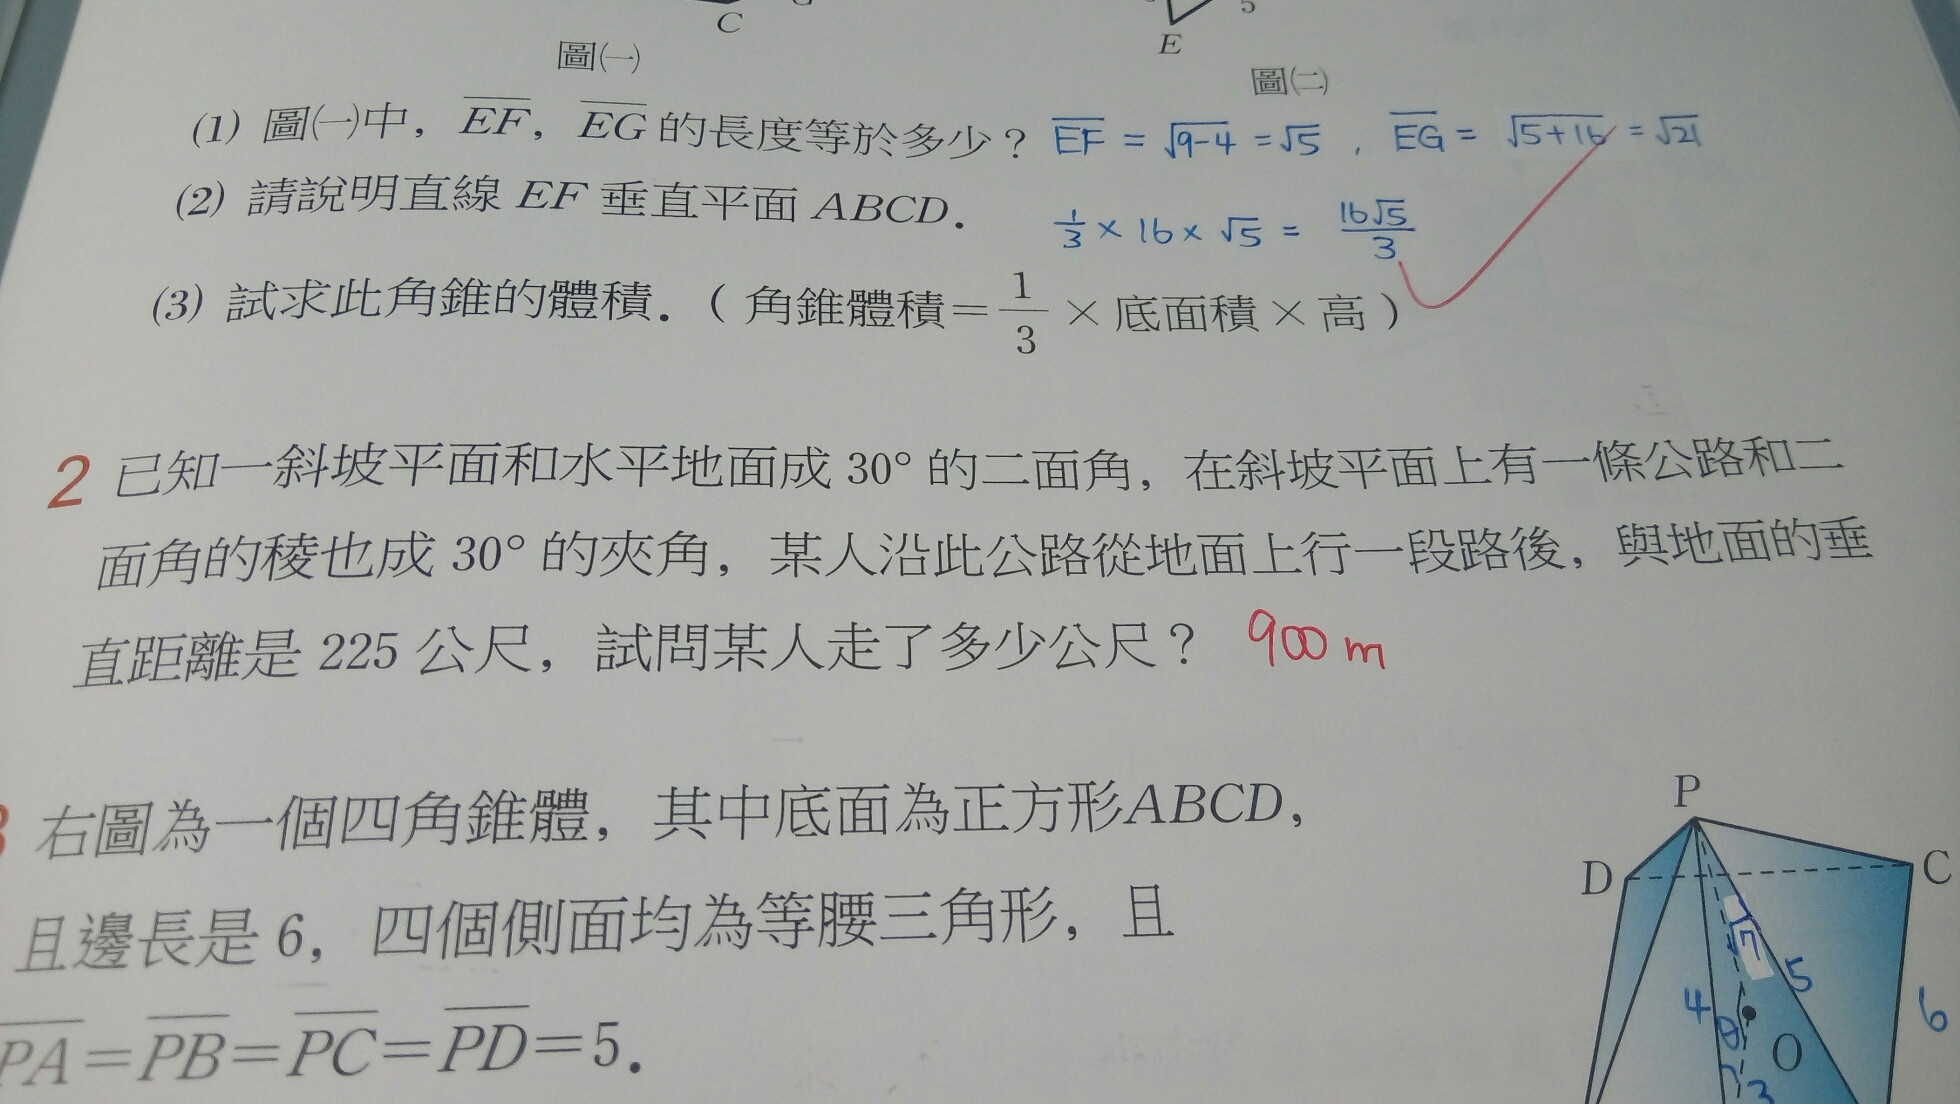 C
5
E
圖㈠
圖㈡
(1) 圖㈠中，EF，EG 的長度等於多少？ EF = √9-4 = √5 , EG = √5+16 = √21
(2) 請說明直線 EF 垂直平面 ABCD．
1/3 × 16 × √5 = 16√5/3
(3) 試求此角錐的體積．（角錐體積＝1/3 × 底面積 × 高）
2 已知一斜坡平面和水平地面成 30° 的二面角，在斜坡平面上有一條公路和二
面角的稜也成 30° 的夾角，某人沿此公路從地面上行一段路後，與地面的垂
直距離是 225 公尺，試問某人走了多少公尺？ 900 m
右圖為一個四角錐體，其中底面為正方形ABCD，
且邊長是 6，四個側面均為等腰三角形，且
PA＝PB＝PC＝PD＝5．
P
D
C
√7
5
4
6
θ
O
3